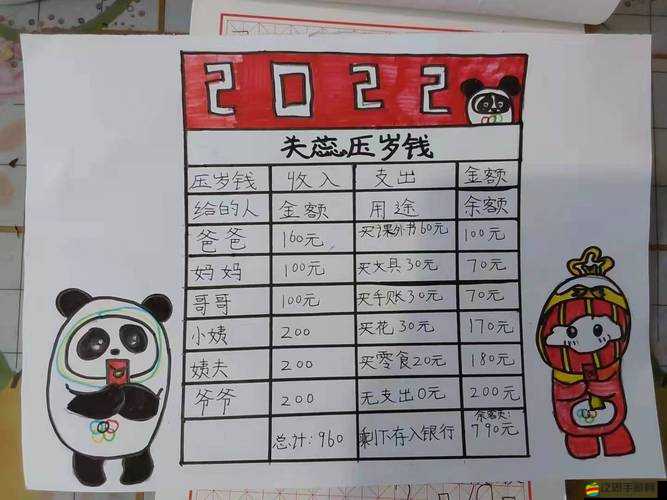 2022
关蕊压岁钱
压岁钱 收入 支出 金额
给的人 金额 用途 余额
爸爸 160元 买课外书60元 100元
妈妈 100元 买文具30元 70元
哥哥 100元 买手账30元 70元
小姨 200 买花30元 170元
姨夫 200 买零食20元 180元
爷爷 200 无支出0元 200元
总计:960 剩下存入银行 余额共:790元